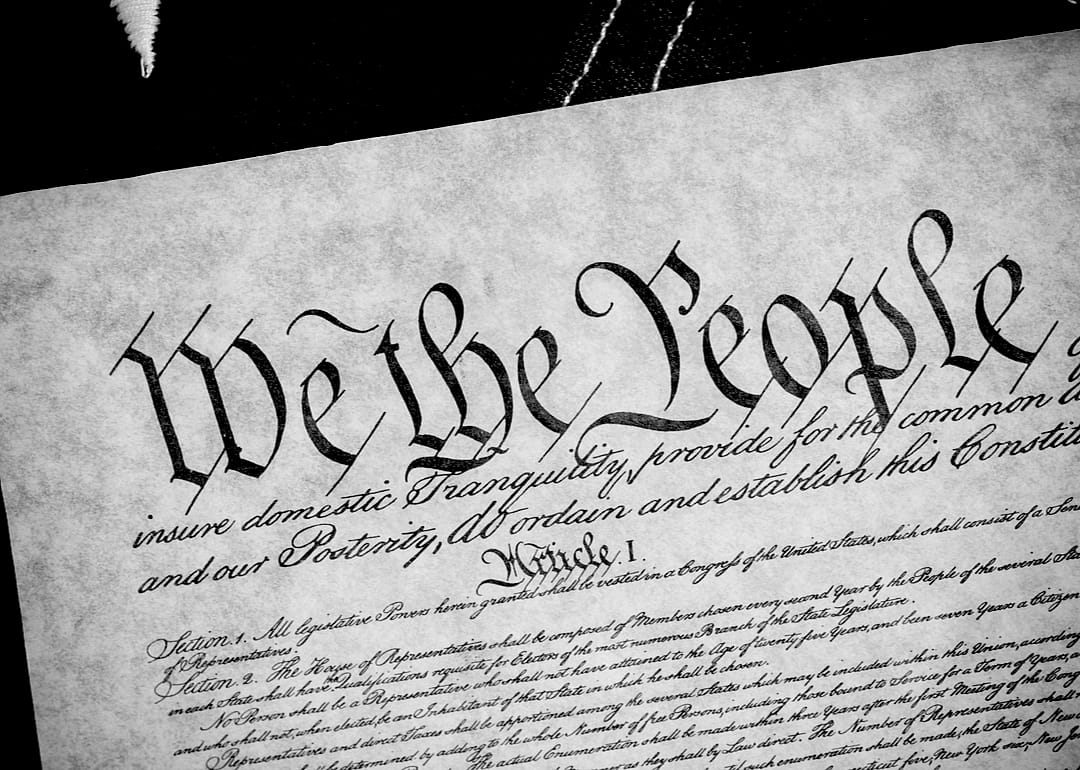 We the People
insure domestic Tranquility, provide for the common
and our Posterity, do ordain and establish this Constitu
Article. I.
Section. 1. All legislative Powers herein granted shall be vested in a Congress of the United States, which shall consist of a Sen
of Representatives.
Section. 2. The House of Representatives shall be composed of Members chosen every second Year by the People of the several Stat
in each State shall have the Qualifications requisite for Electors of the most numerous Branch of the State Legislature.
No Person shall be a Representative who shall not have attained to the Age of twenty five Years, and been seven Years a Citizen
and who shall not, when elected, be an Inhabitant of that State in which he shall be chosen.
Representatives and direct Taxes shall be apportioned among the several States which may be included within this Union, according
shall be determined by adding to the whole Number of free Persons, including those bound to Service for a Term of Years, a
The actual Enumeration shall be made within three Years after the first Meeting of the Cong
as they shall by Law direct. The Number of Representatives shall
such enumeration shall be made, the State of New
five, New York six, New